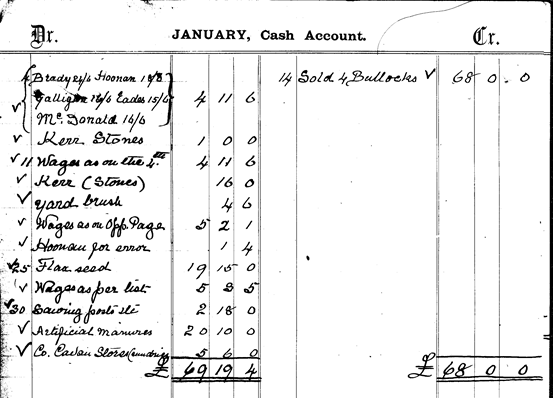 Dr. JANUARY, Cash Account. Cr.
4 Brady 24/6 Hoonan 18/8 14 Sold 4 Bullocks √ 68 0 0
√ Galligan 18/6 Eades 15/6 4 11 6
Mc Donald 16/6
√ Kerr Stones 1 0 0
√ 11 Wages as on the 4th 4 11 6
√ Kerr (Stones) 16 0
√ Yard brush 4 6
√ Wages as on Opp. Page 5 2 1
√ Hoonan for error 1 4
√ 25 Flax seed 19 15 0
√ Wages as per list 5 3 5
√ 30 Sawing posts etc 2 18 0
√ Artificial manures 20 10 0
√ Co. Cavan Stores 5 6 0
£ 69 19 4 £ 68 0 0